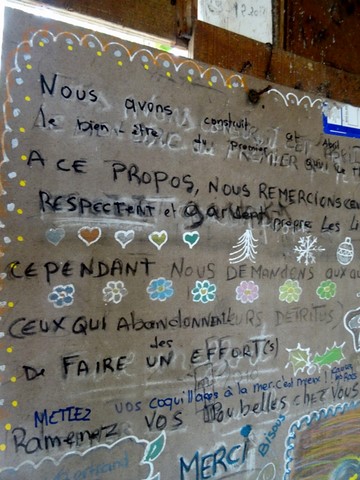 Nous avons construit et
le bien-être du premier qui
A CE PROPOS, NOUS REMERCIONS ceux
RESPECTENT et gardent propre Les Li
CEPENDANT NOUS DEMANDONS aux
CEUX QUI AbandonnenT leurs DETRITUS
des
De FAIRE UN EFFORT(S)
METTEZ vos coquillages à la mer. c'est mieux!
Ramenez VOS Poubelles chez VOUS
MERCI Bisous